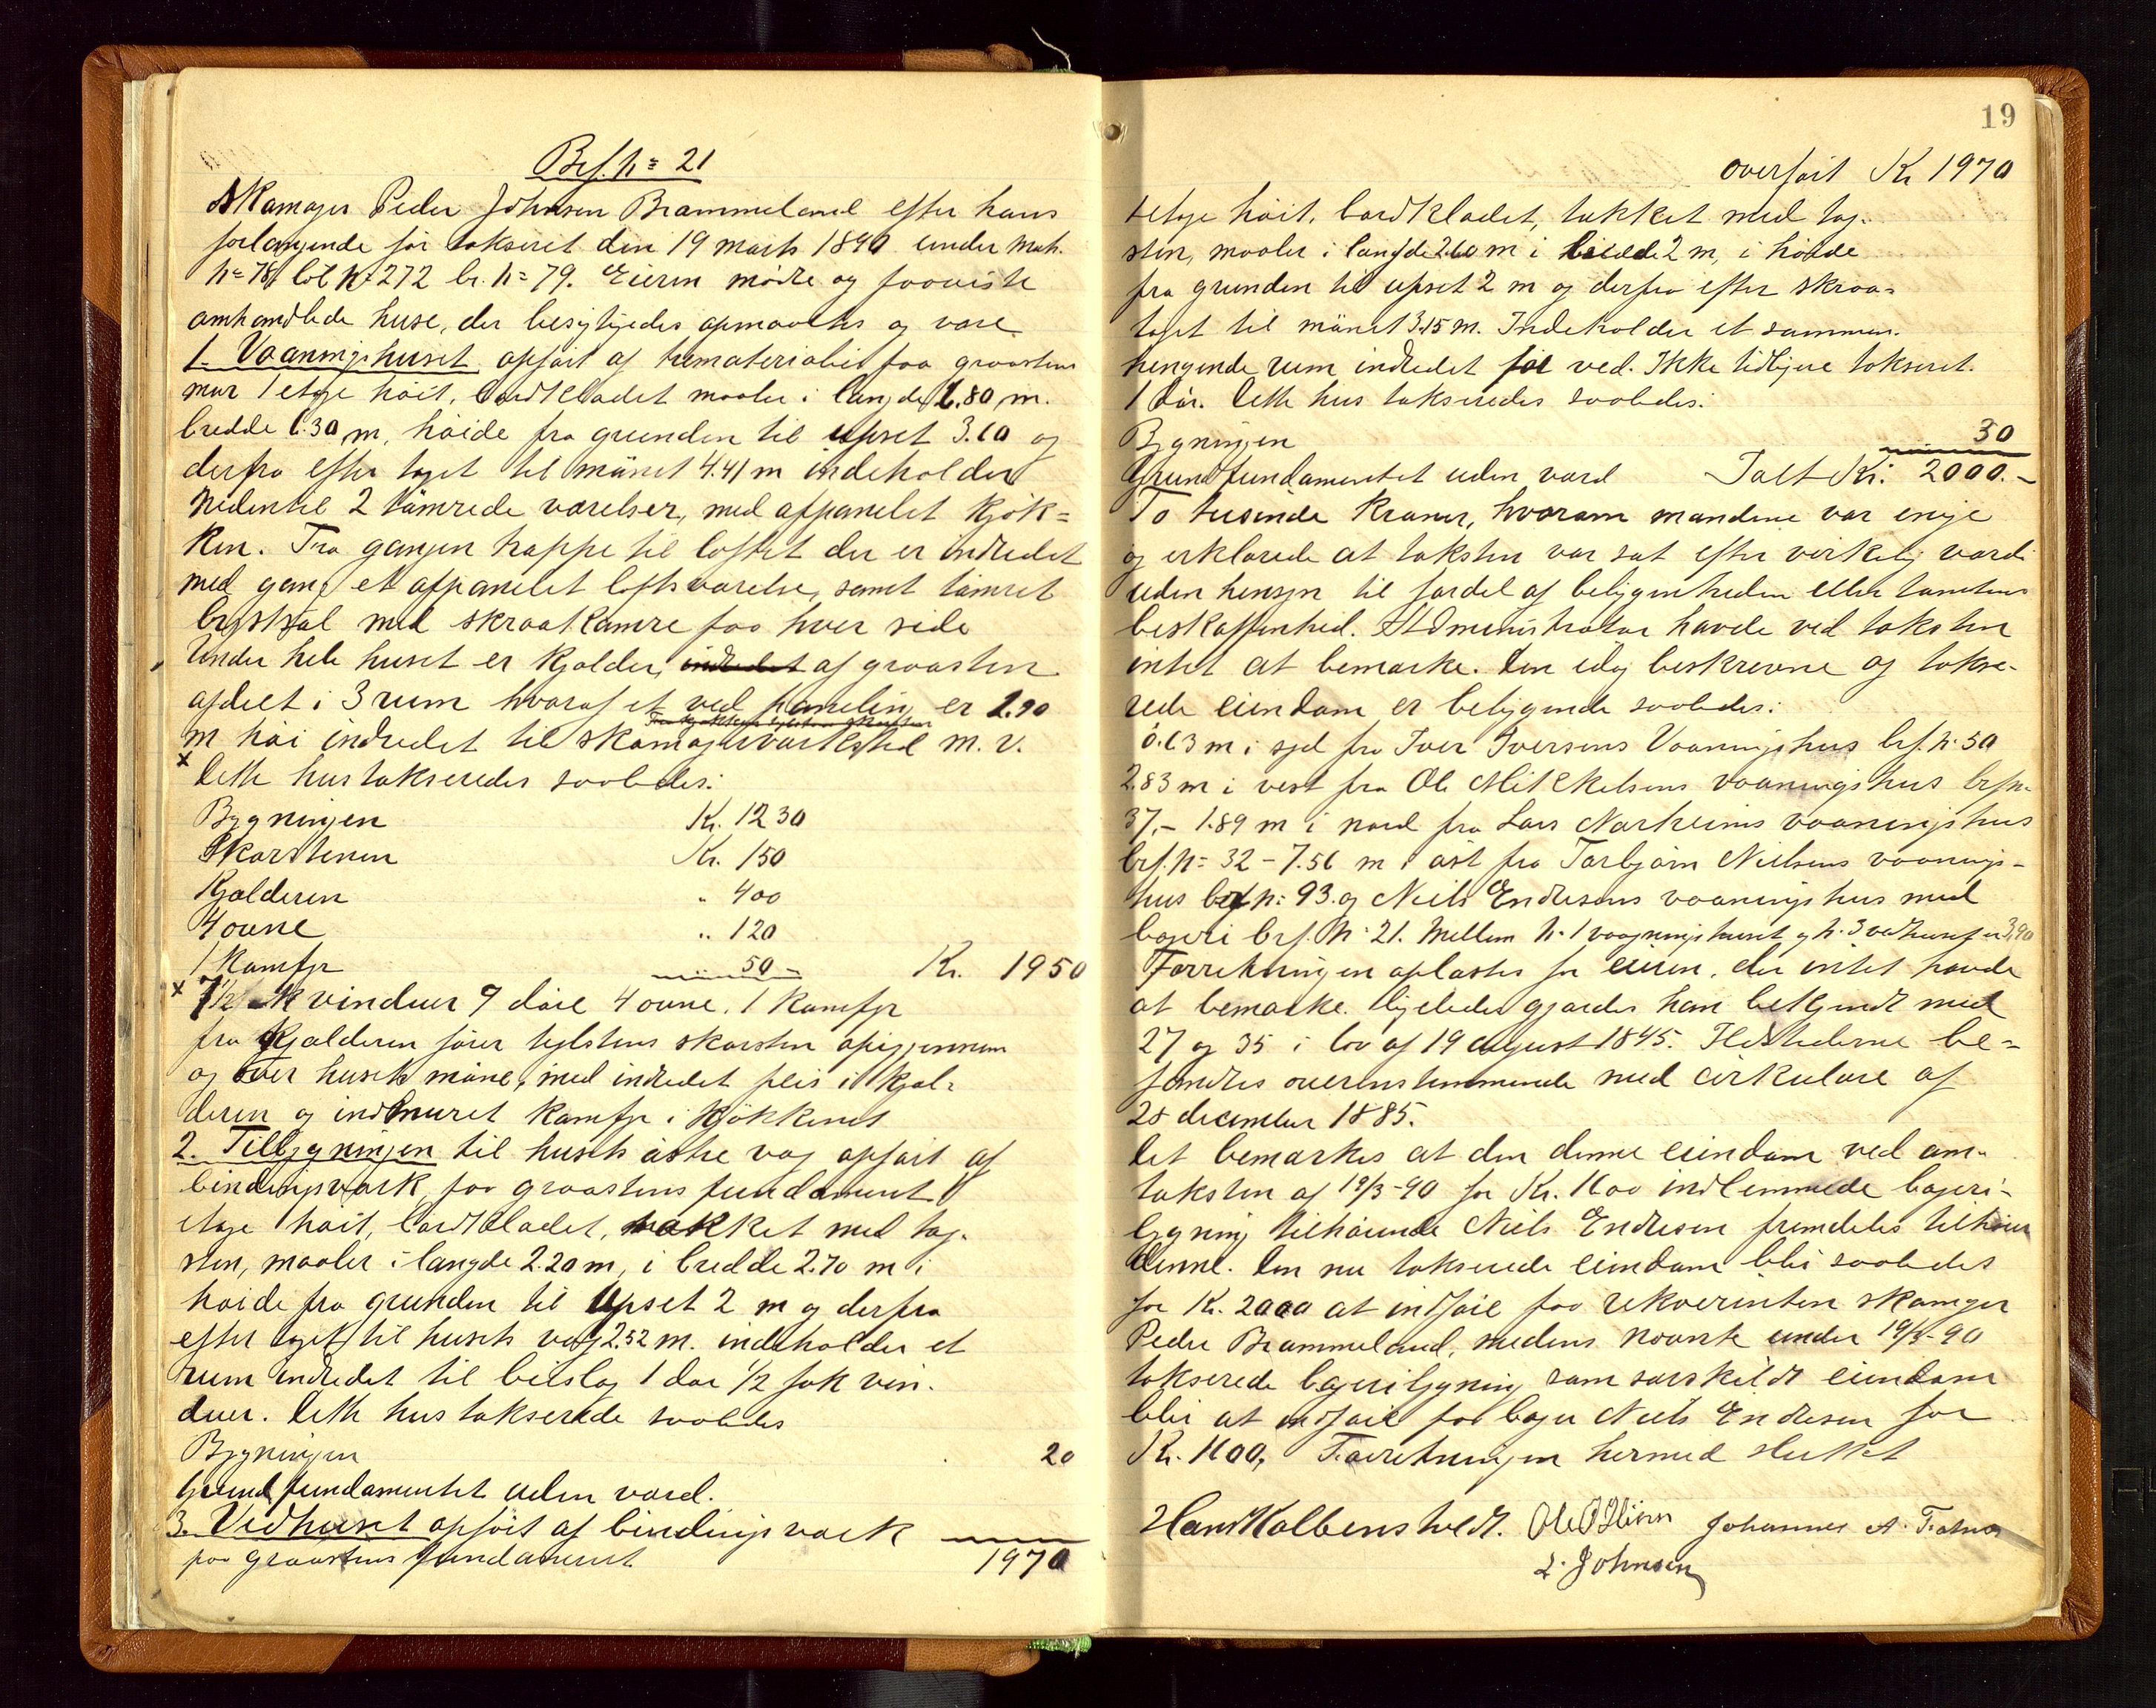 Brf. No 21
Skomager Peder Johnsen Brammeland efter hans
forlangende får takseret den 19 marts 1890 under Matr.
No 78, lot No 272 br. No 79. Eieren mødte og foreviste
omhandlede huse, der besigtigedes opmaaltes og vare
1. Vaaningshuset opført af træmaterialier paa graastens
mur 1 etage høit, bordklædet maaler i længde 6.80 m.
bredde 6.30 m, høide fra grunden til upset 3.60 og
derfra efter taget til mønet 4.41 m indeholder
Nedentil 2 tømrede værelser, med afpanelet kjøk=
ken. Fra gangen trappe til loftet der er indredet
med gang et afpanelet loftsværelse, samt tømret
brystsal med skraatkamre paa hver side
Under hele huset er kjælder, indredet af graasten
afdelt i 3 rum hvoraf et ved paneling er 1.90
m høi indredet til skomagerværksted m. v.
x Dette hus takseredes saaledes:
Bygningen Kr. 1230
Skorstenen Kr. 150
Kjælderen " 400
4 ovne " 120
1 Komfyr 50 - Kr. 1950
x 7½ fk vinduer 9 døre 4 ovne, 1 Komfyr
fra Kjælderen fører teglstens skorsten opigjennem
og over husets møne, med indredet peis i kjæl=
deren og indmuret komfyr i kjøkkenet
2. Tilbygningen til husets østre væg opført af
bindingsværk, paa graastens fundament 1
etage høit, bordklædet, takket med tag-
sten, maaler i længde 2.20 m, i bredde 2.70 m i
høide fra grunden til Upset 2 m og derfra
efter taget til husets væg 2.52 m. indeholder et
rum indredet til bislag 1 dør ½ fak vin-
duer. Dette hus takserede saaledes
Bygningen 20
Grundfundamentet uden værd.
3. Vedhuset opført af bindingsværk
paa graastens fundament 1970
19
overført Kr 1970
1 etage høit, bordklædet, takket med tag-
sten, maaler i længde 2.60 m i bredde 2 m, i høide
fra grunden til upset 2 m og derfra efter skraa=
taget til mønet 3.15 m. Indeholder et sammen-
hengende rum indredet til ved. Ikke tidligere takseret.
1 dør. Dette hus takseredes saaledes:
Bygningen 30
Grundfundamentet uden værd Ialt Kr. 2000.-
To tusinde Kroner, hvorom mændene var enige
og erklærede at taksten var sat efter virkelig værdi
uden hensyn til fordel af beliggenheden eller tomtens
beskaffenhed. Administrator havde ved taksten
intet at bemærke. Den idag beskrevne og takse-
rede eiendom er beliggende saaledes:
0.63 m i syd fra Iver Iversens Vaaningshus brf. No 50
2.83 m i vest fra Ole Mikkelsens vaaningshus brf No
37,- 1.89 m i nord fra Lars Norheims vaaningshus
brf. No 32 - 7.56 m i øst fra Torbjørn Nielsens vaanings-
hus brf No 93. og Niels Endresens vaaningshus med
bageri brf. No 21. Mellem No 1 vaaningshuset og No 3 vedhuset er 3,90
Forretningen oplæstes for eieren, der intet havde
at bemærke. Ligeledes gjordes han bekjendt med
27 og 35 i lov af 19 august 1845. Ildstederne be=
fandtes overensstemmende med cirkulære af
28 december 1885.
Det bemærkes at den denne eiendom ved om-
taksten af 19/3-90 for Kr. 1600 indlemmede bageri-
bygning tilhørende Niels Endresen fremdeles tilhører
denne. Den nu takserede eiendom blir saaledes
for Kr. 2000 at indføre paa rekvirenten skomager
Peder Brammeland, medens navnte under 19/3-90
takserede bageribygning som særskildt eiendom
blir at indføre paa bager Niels Endresen for
Kr. 1600, Forretningen hermed sluttet
Hans Kolbenstvedt.
L. Johnsen